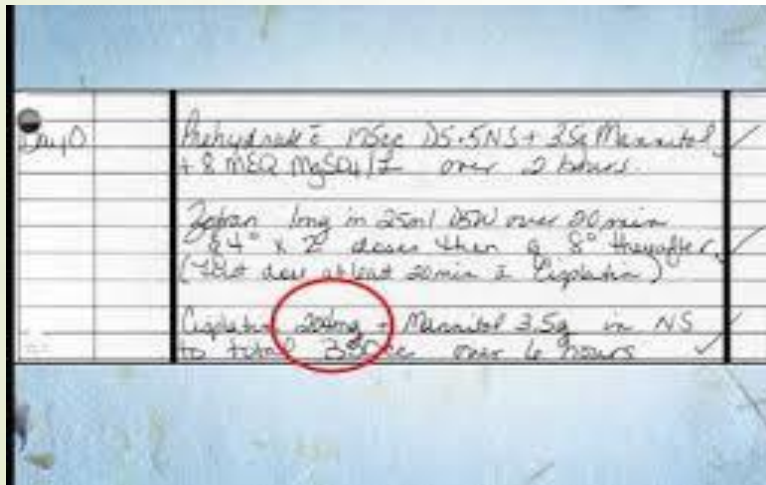 Day 0
Prehydrate c̄ 175cc D5.5NS + 3.5g Mannitol
+ 8 MEQ MgSO4/L over 2 hours.
Zofran 1mg in 25ml D5W over 20 min
q 4° x 2 doses then q 8° thereafter
(First dose at least 20min Cisplatin)
Cisplatin 204mg + Mannitol 3.5g in NS
to total over 6 hours